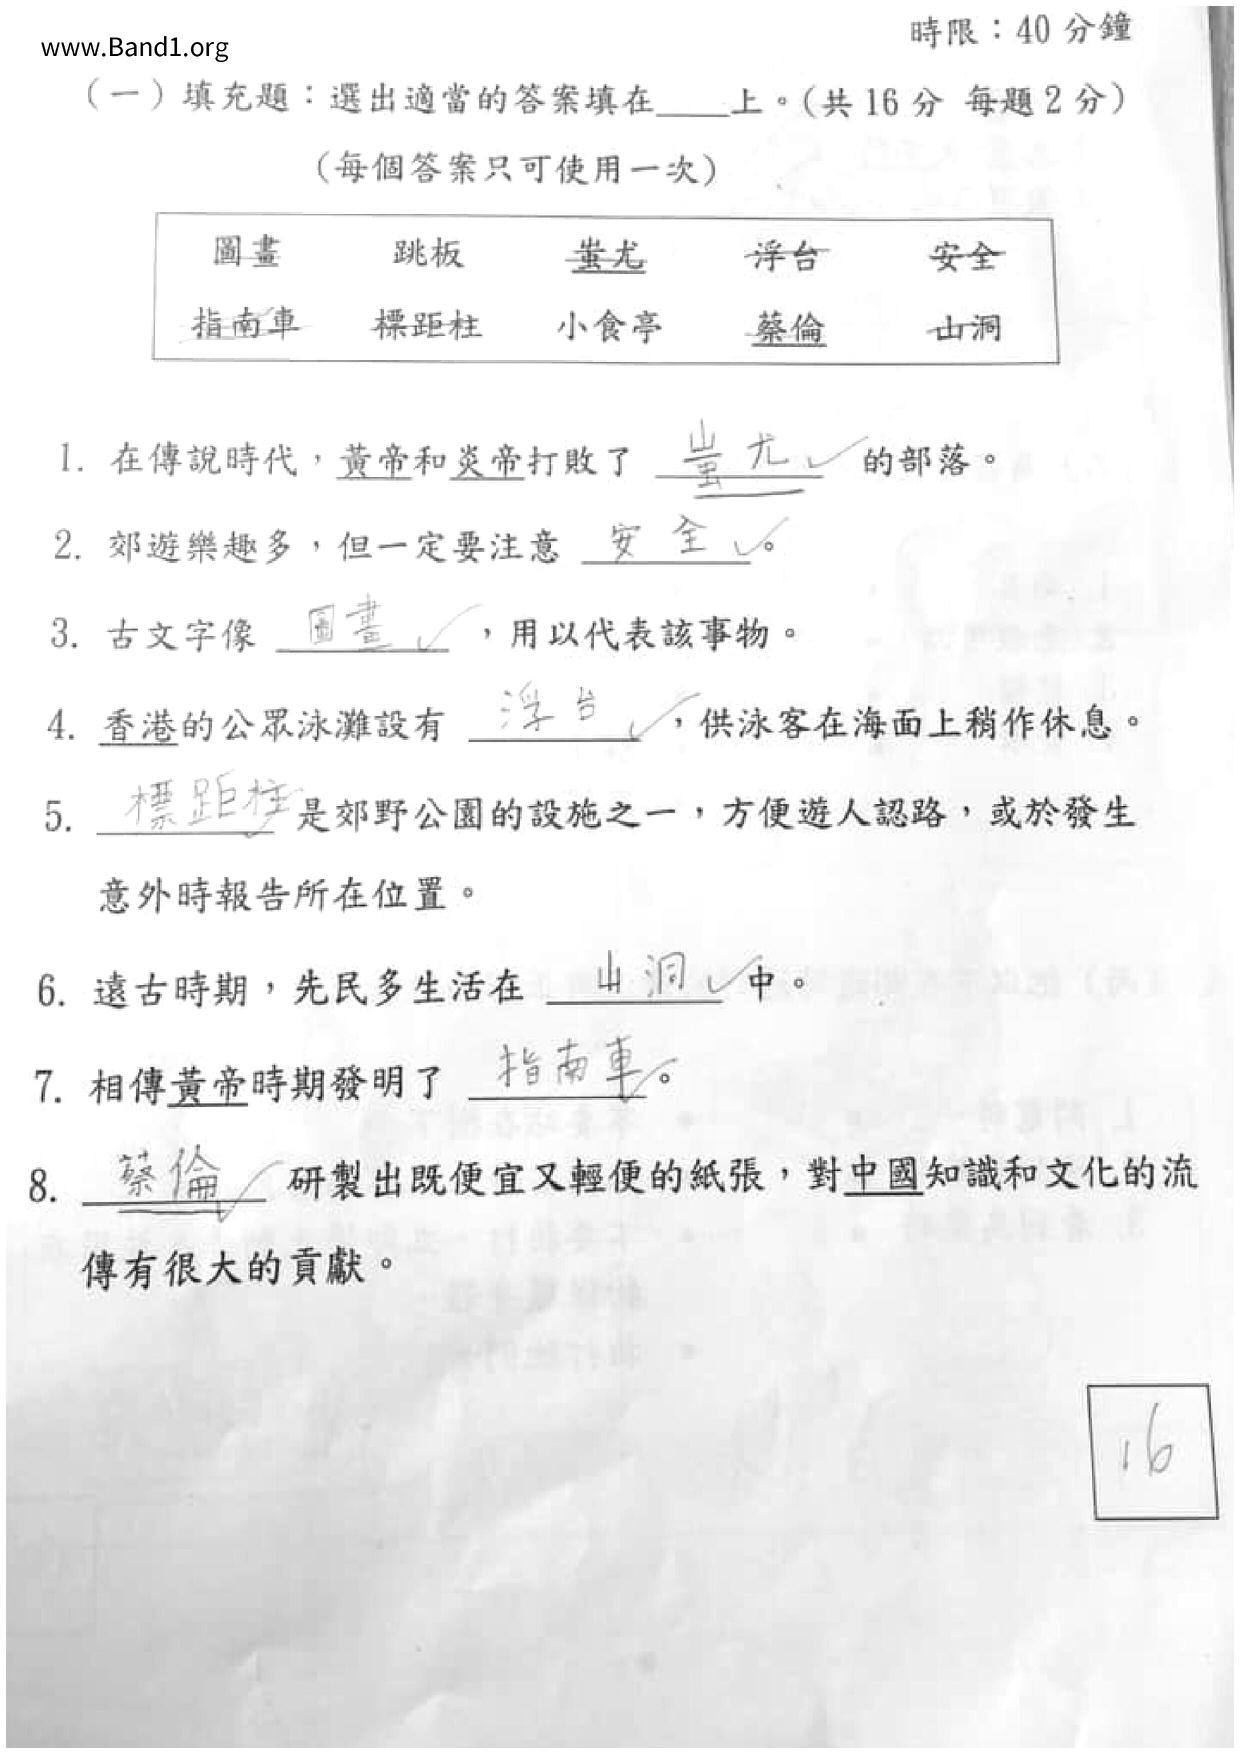 www.Band1.org
時限：40 分鐘
（一）填充題：選出適當的答案填在____上。（共 16 分 每題 2 分）
（每個答案只可使用一次）
圖畫 跳板 蚩尤 浮台 安全
指南車 標距柱 小食亭 蔡倫 山洞
1. 在傳說時代，黃帝和炎帝打敗了 蚩尤 的部落。
2. 郊遊樂趣多，但一定要注意 安全 。
3. 古文字像 圖畫 ，用以代表該事物。
4. 香港的公眾泳灘設有 浮台 ，供泳客在海面上稍作休息。
5. 標距柱 是郊野公園的設施之一，方便遊人認路，或於發生
意外時報告所在位置。
6. 遠古時期，先民多生活在 山洞 中。
7. 相傳黃帝時期發明了 指南車 。
8. 蔡倫 研製出既便宜又輕便的紙張，對中國知識和文化的流
傳有很大的貢獻。
16